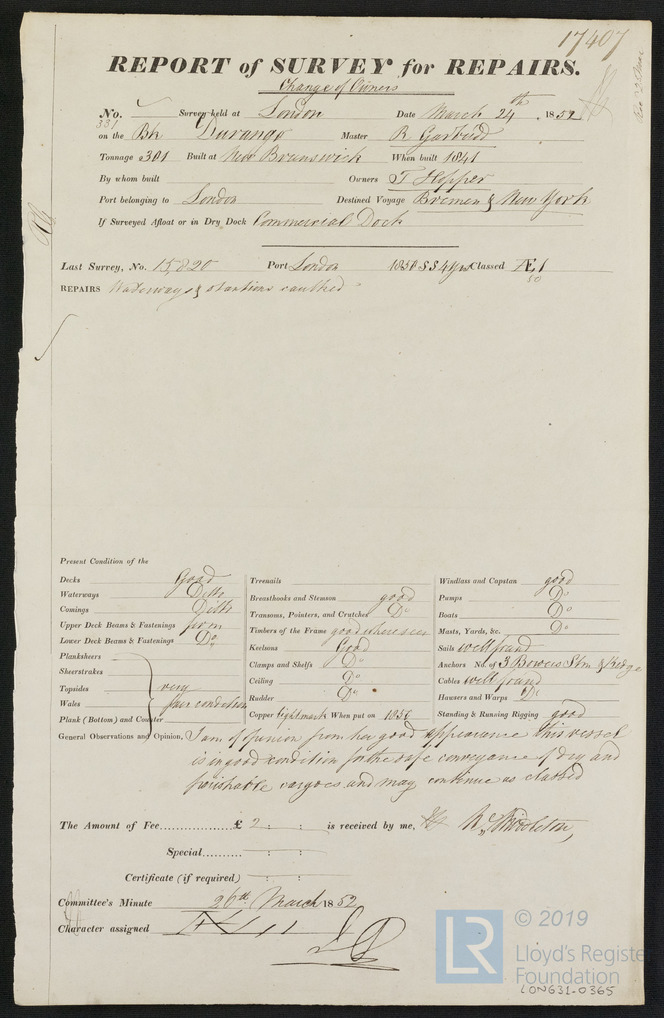 17407
REPORT of SURVEY for REPAIRS.
Change of Owners
No. 331 Survey held at London Date March 24th 1852
on the Bk Durango Master R
Tonnage 301 Built at New Brunswick When built 1841
By whom built Owners T Hopper
Port belonging to London Destined Voyage Bremen & New York
If Surveyed Afloat or in Dry Dock Commercial Dock
Last Survey, No. 15820 Port London 1850 SS 4yrs Classed Æ1
50
REPAIRS Waterways & stantions caulked
Present Condition of the
Decks Good
Waterways Ditto
Comings Ditto
Upper Deck Beams & Fastenings firm
Lower Deck Beams & Fastenings Do
Planksheers
Sheerstrakes
Topsides very
Wales fair condition
Plank (Bottom) and Counter
Treenails
Breasthooks and Stemson good
Transoms, Pointers, and Crutches Do
Timbers of the Frame good where seen
Keelsons Good
Clamps and Shelfs Do
Ceiling Do
Rudder Do
Copper When put on 1850
Windlass and Capstan good
Pumps Do
Boats Do
Masts, Yards, &c. Do
Sails well found
Anchors No. of 3 Bowers Stm & Kedge
Cables well found
Hawsers and Warps Do
Standing & Running Rigging good
General Observations and Opinion, I am of opinion from her good appearance this vessel
is in good condition for the safe conveyance of dry and
perishable cargoes and may continue as classed
The Amount of Fee.................£ 2 : : is received by me,
Special.......... : :
Certificate (if required) : :
Committee's Minute 26th March 1852
Character assigned
© 2019
LR
Lloyd's Register
Foundation
LON631-0365